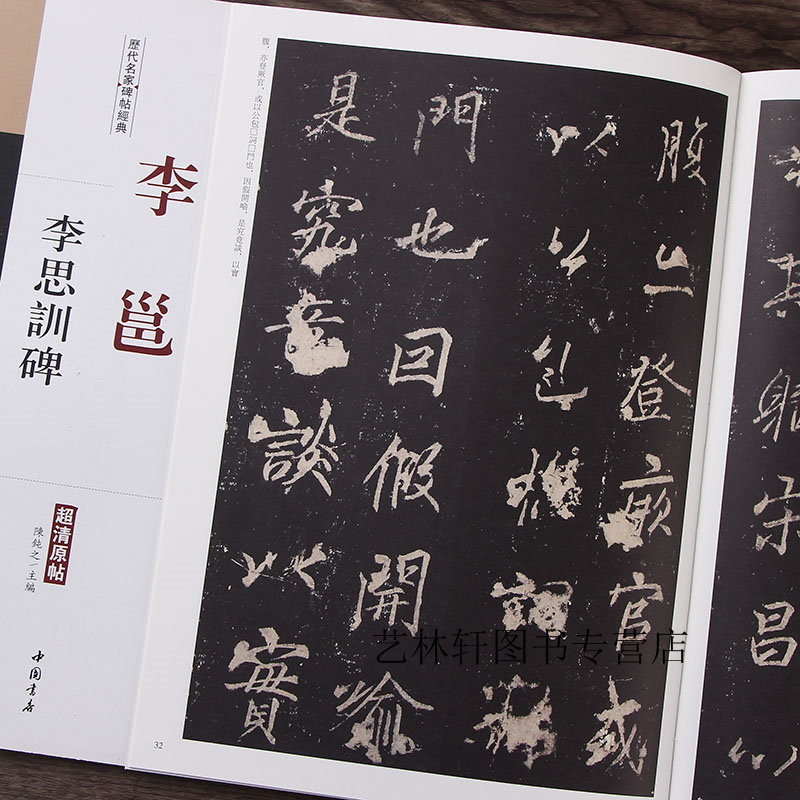 歷代名家碑帖經典
李邕
李思訓碑
超清原帖
陳鈍之/主編
中国書店
亦登厥官、或以公包□詞□門也、因假開喻、是究竟談、以實
其躬宋昌
腹亦登厥官或
以公包詞
門也因假開喻
是究竟談以實
32
艺林轩图书专营店